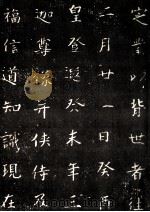 定業以背世者往
二月廿一日癸酉
皇登遐癸未年
迦尊并俠侍及
福信道知識現在